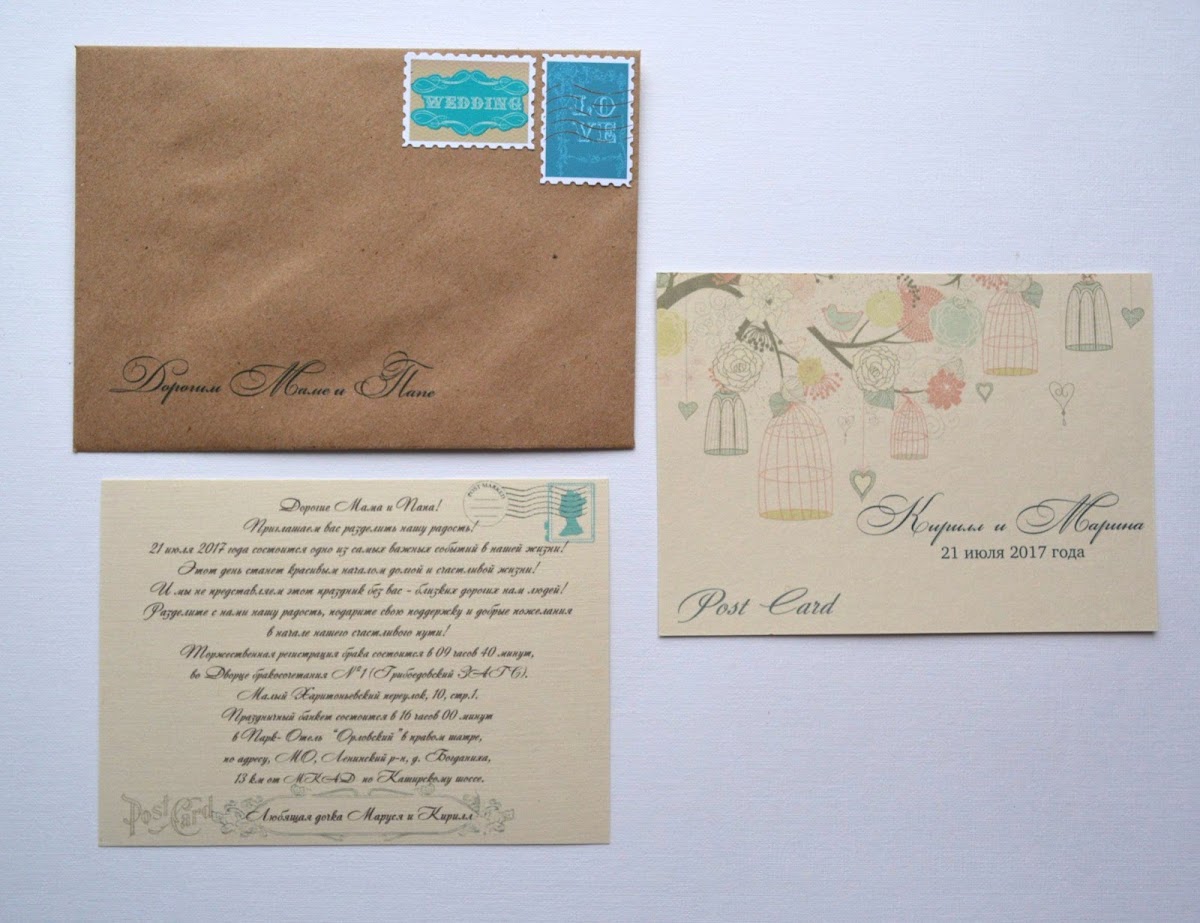 WEDDING
LO
VE
Дорогим Маме и Папе
Кирилл и Марина
21 июля 2017 года
Post Card
POST MARKET
Дорогие Мама и Папа!
Приглашаем вас разделить нашу радость!
21 июля 2017 года состоится одно из самых важных событий в нашей жизни!
Этот день станет красивым началом долгой и счастливой жизни!
И мы не представляем этот праздник без вас - близких дорогих нам людей!
Разделите с нами нашу радость, подарите свою поддержку и добрые пожелания
в начале нашего счастливого пути!
Торжественная регистрация брака состоится в 09 часов 40 минут,
во Дворце бракосочетания №1 (Грибоедовский ЗАГС).
Малый Харитоньевский переулок, 10, стр.1.
Праздничный банкет состоится в 16 часов 00 минут
в Парк- Отель "Орловский" в правом шатре,
по адресу, МО, Ленинский р-н, д. Богданиха,
13 км от МКАД по Каширскому шоссе.
Post Card
Любящая дочка Маруся и Кирилл